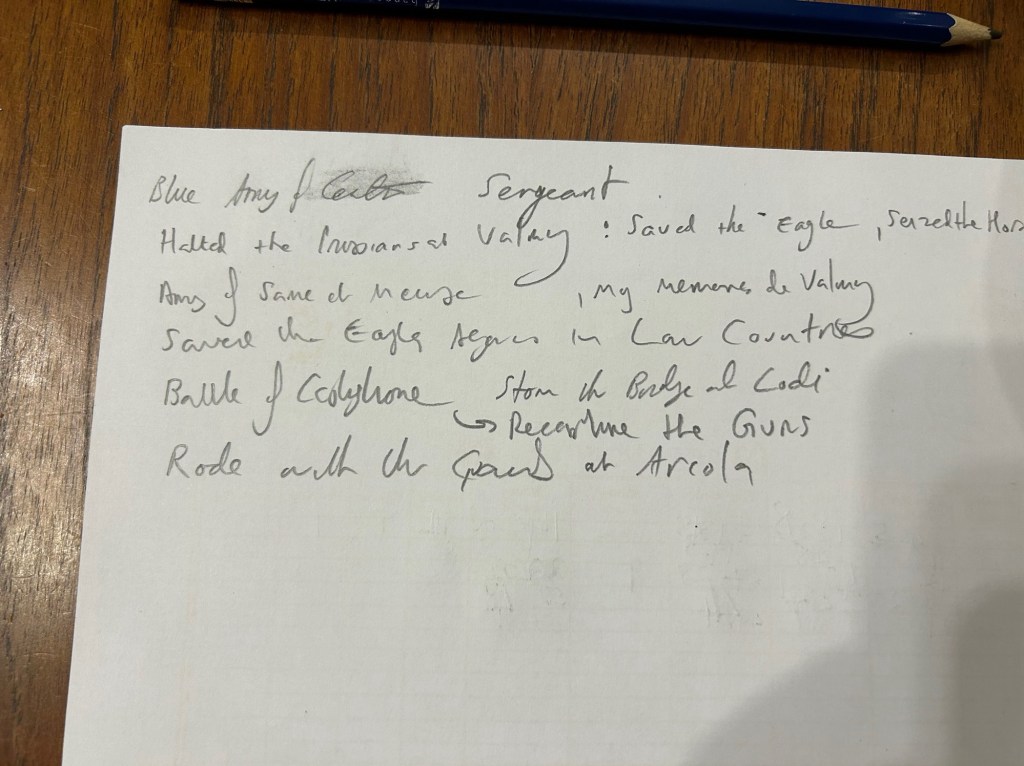 Blue Army of Sergeant
Halted the Prussians at Valmy : Saved the Eagle, Seized the Hors
Army of Sambre et Meuse , my memories de Valmy
Saved the Eagle Again in Low Countries
Battle of Storm the Bridge at Lodi
↳ Recapture the Guns
Rode with the Guard at Arcola